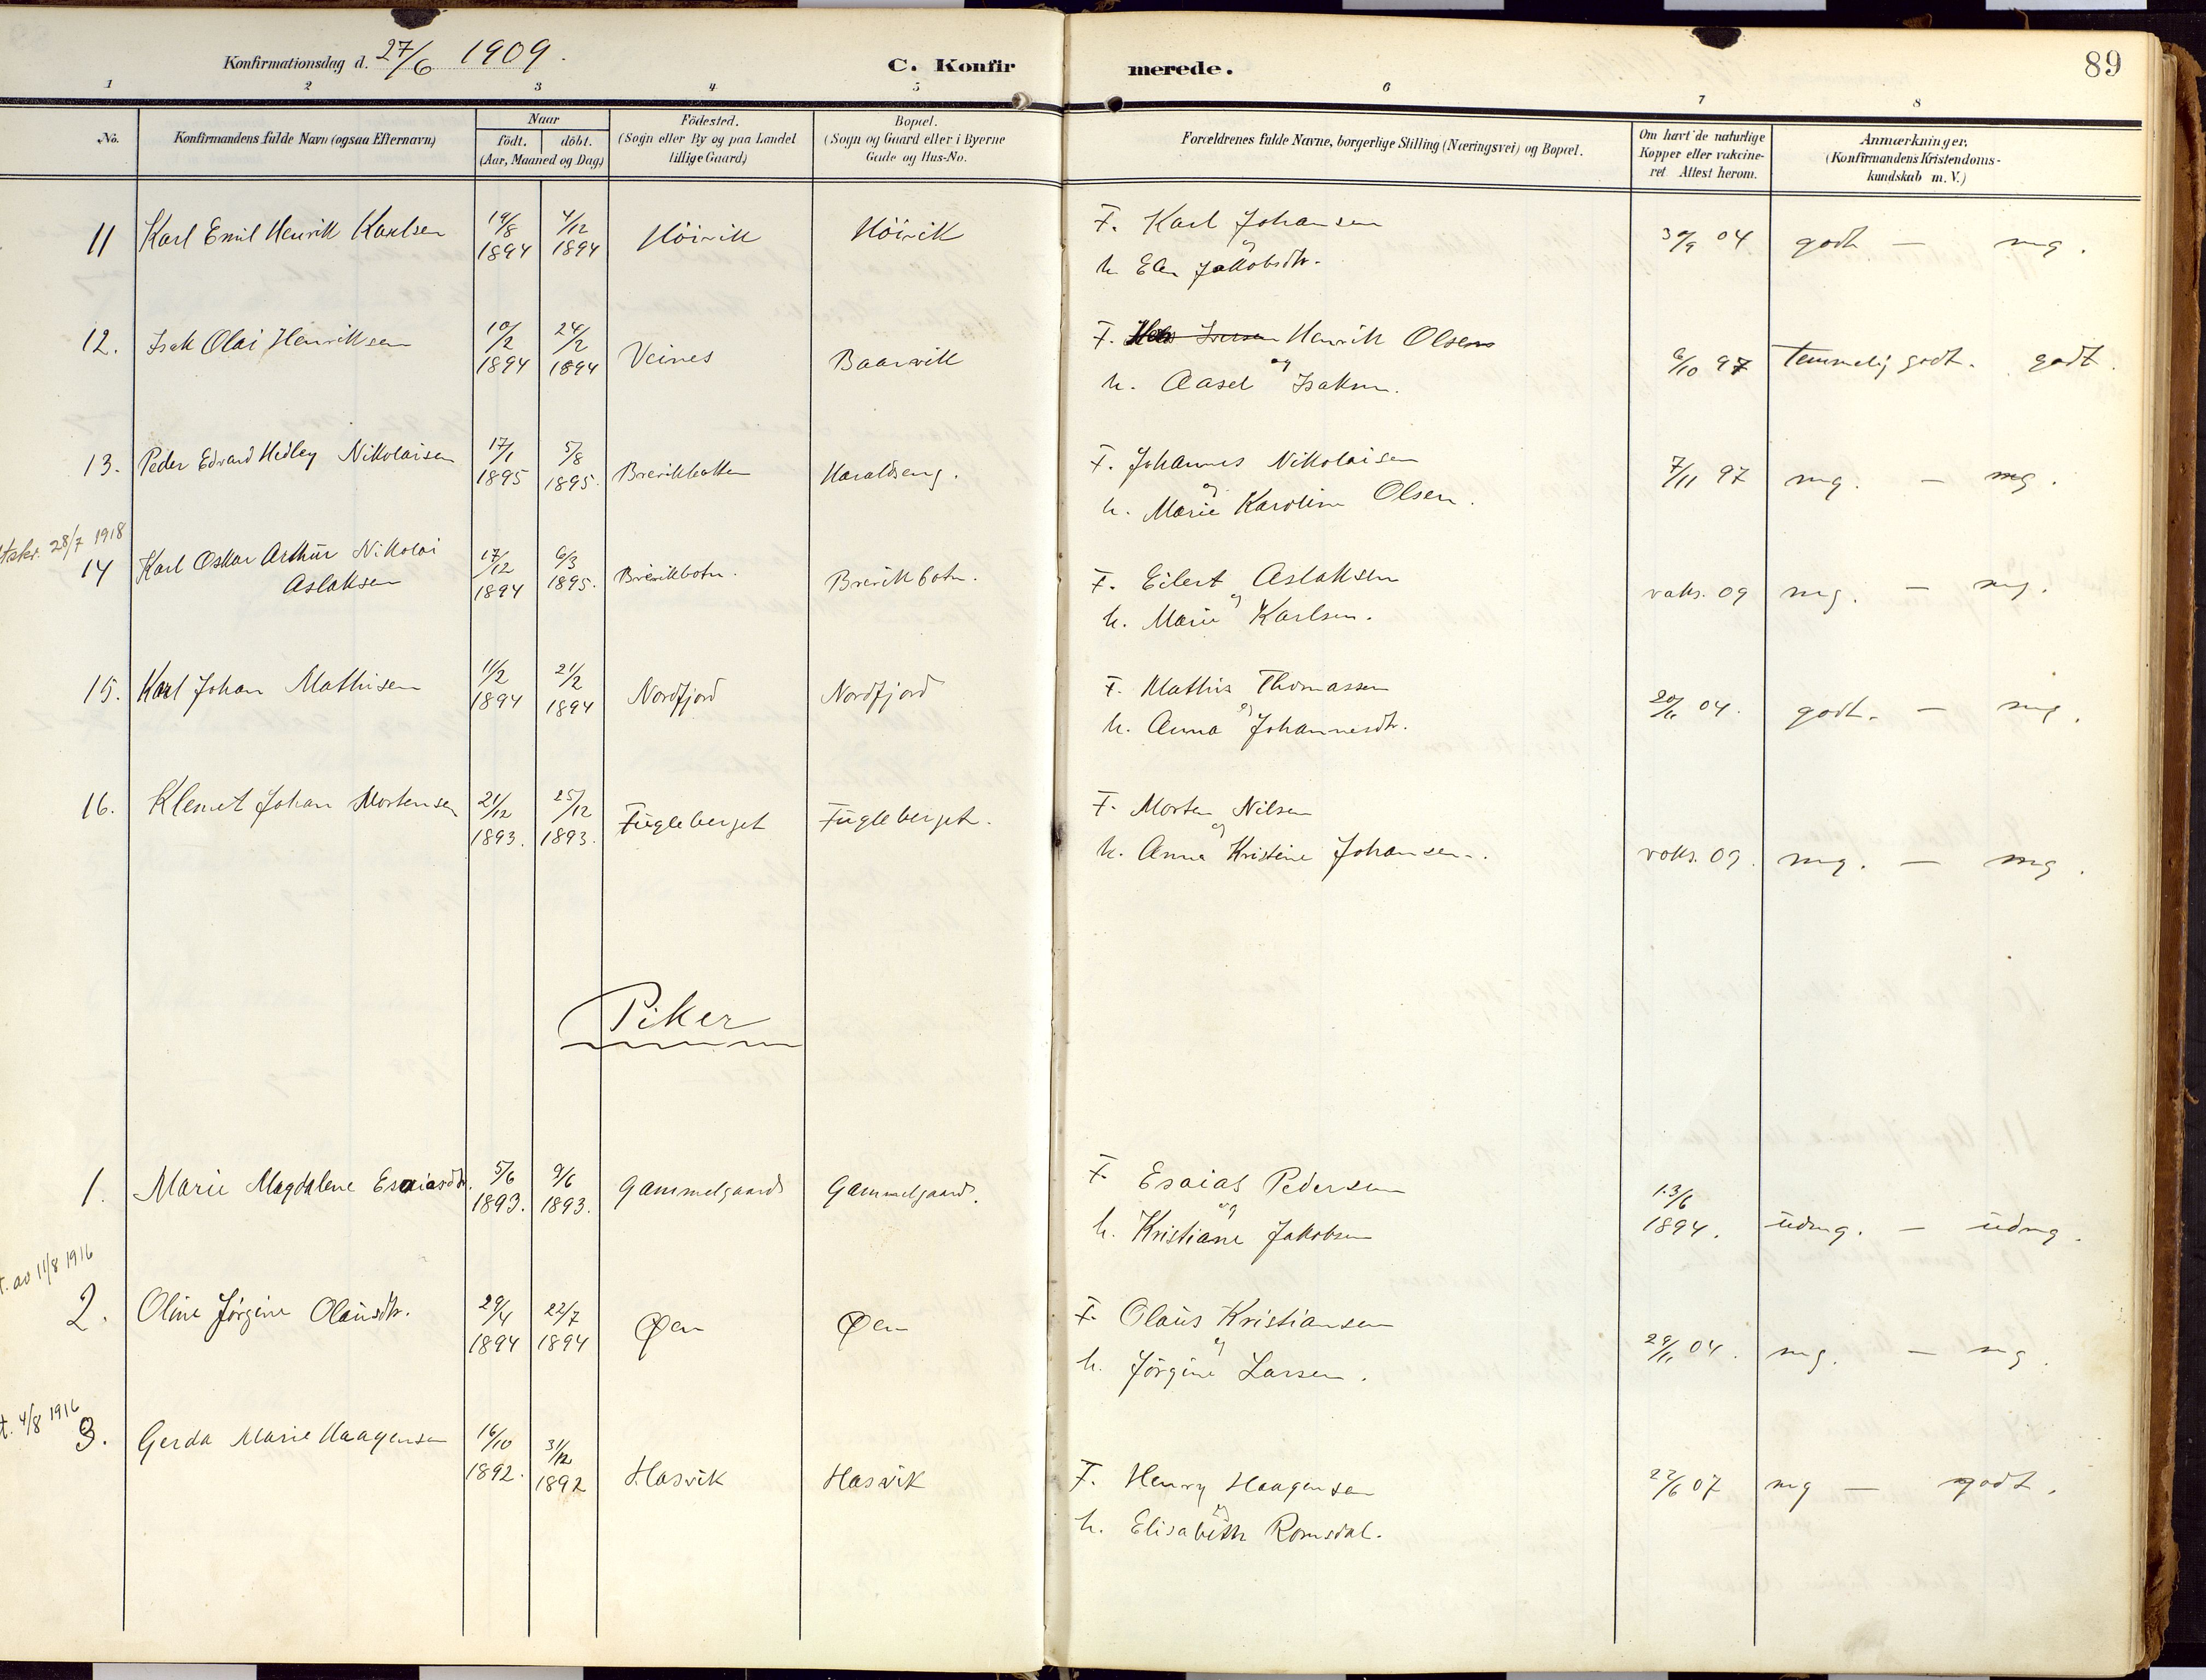 Konfirmationsdag d. 27/6 1909.
C. Konfirmerede.
89
1 2 3 4 5 6 7 8
No.
Konfirmandens fulde Navn (ogsaa Efternavn)
Naar
födt. döbt.
(Aar, Maaned og Dag)
Födested.
(Sogn eller By og paa Landet
tillige Gaard)
Bopæl.
(Sogn og Gaard eller i Byerne
Gade og Hus-No.
Forældrenes fulde Navne, borgerlige Stilling (Næringsvei) og Bopæl.
Om havt de naturlige
Kopper eller vakcine-
ret Attest herom.
Anmærkninger.
(Konfirmandens Kristendoms-
kundskab m. V.)
11 Karl Emil Henrik Karlsen 19/8 1894 4/12 1894 Höivik Höivik
F. Karl Johansen
og
M Elen Jakobsdtr.
30/9 04 godt — mg.
12. Isak Olai Henriksen 10/2 1894 24/2 1894 Veines Baarvik
F. Iversen Henrik Olsen
og
M. Aasel Isaksen.
6/10 97 Temmelig godt. godt.
13. Peder Edvard Hedley Nikolaisen 17/1 1895 5/8 1895. Brevikbotten Haraldseng.
F. Johannes Nikolaisen
og
M. Marie Karoline Olsen.
7/11 97 mg. — mg.
28/7 1918
14 Karl Oskar Arthur Nikolai
Aslaksen 17/12 1894 6/3 1895. Brevikbotn. Brevikbotn.
F. Eilert Aslaksen
og
M. Marie Karlsen.
vaks. 09 mg. — mg.
15. Karl Johan Mathisen 11/2 1894 21/2 1894 Nordfjord Nordfjord
F. Mathis Thomassen
og
M. Anna Johannesdtr.
20/11 04. godt. — mg.
16. Klemet Johan Mortensen 21/12 1893. 25/12 1893. Fugleberget Fugleberget.
F. Morten Nilsen
og
M. Anna Kristine Johansen.
vaks. 09. mg. — mg.
Piker
1. Marie Magdalene Esaiasdtr. 5/6 1893. 9/6 1893. Gammelgaard Gammelgaard.
F. Esaias Pedersen
og
M. Kristiane Jakobsen
13/6 1894. udmg. — udmg.
av 11/8 1916
2. Oline Jörgine Olausdtr. 29/4 1894 22/7 1894 Øen Øen
F. Olaus Kristiansen
og
M. Jörgine Larsen.
29/11 04. mg. — mg.
4/8 1916
3. Gerda Marie Haagensen 16/10 1892. 31/12 1892 Hasvik Hasvik
F. Henry Haagensen
og
M. Elisabeth Romsdal.
22/6 07 mg — godt.